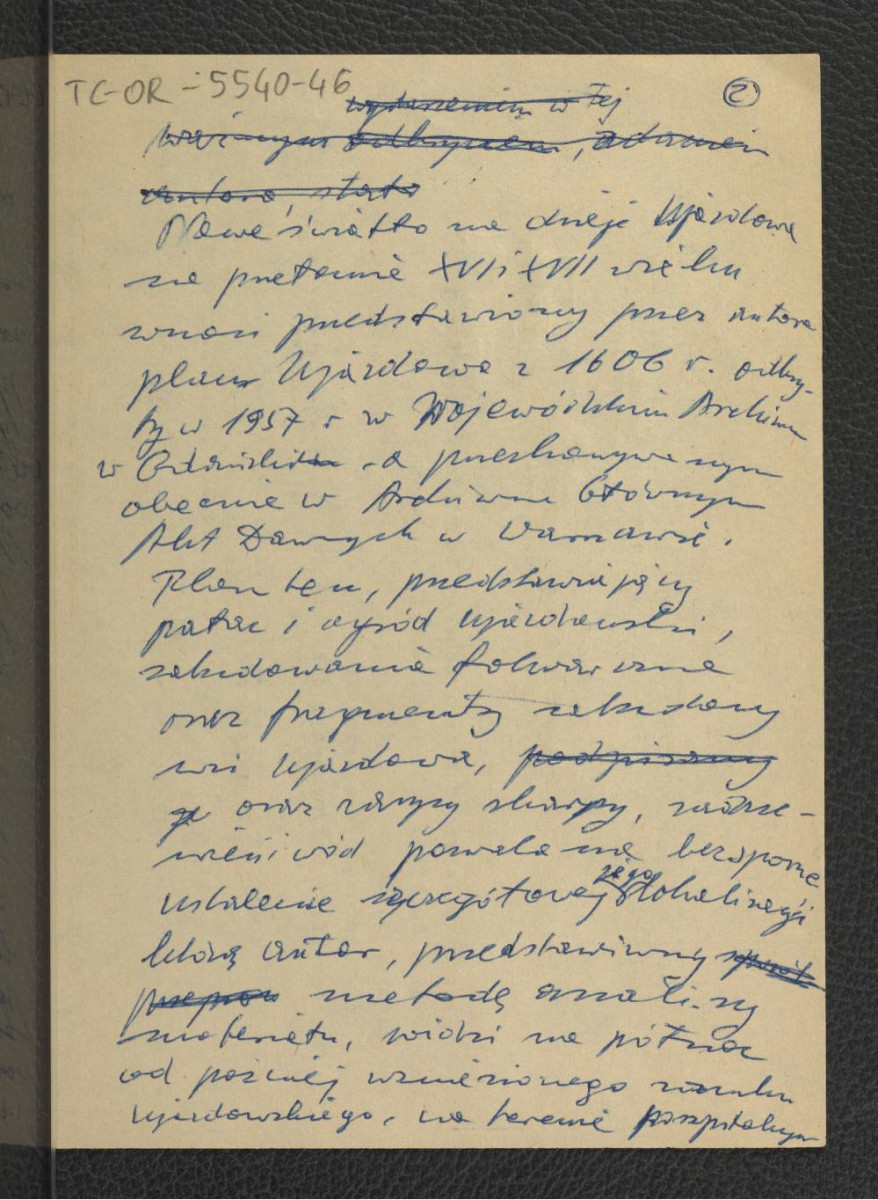 TC-OR-5540-46
2
wydarzeniem w tej
ważnym odkryciem, zdaniem
autora, stało
Nowe światło na dzieje Ujazdowa
na przełomie XVI i XVII wieku
wnosi przedstawiony przez autora
plan Ujazdowa z 1606 r. odkry-
ty w 1957 r w Wojewódzkim Archiwum
w Gdańsku a przechowywanym
obecnie w Archiwum Głównym
Akt Dawnych w Warszawie.
Plan ten, przedstawiający
pałac i ogród ujazdowski,
zabudowania folwarczne
oraz fragmenty zabudowy
wsi Ujazdowa, podpisany
oraz zarysy skarpy, nawod-
wód pozwala na bezsporne
ustalenie szczegółowej jego lokalizacji
którą autor, przedstawiwszy
metodę analizy
materiału, widzi na północ
od później wzniesionego zamku
ujazdowskiego, na terenie poszpitalnym